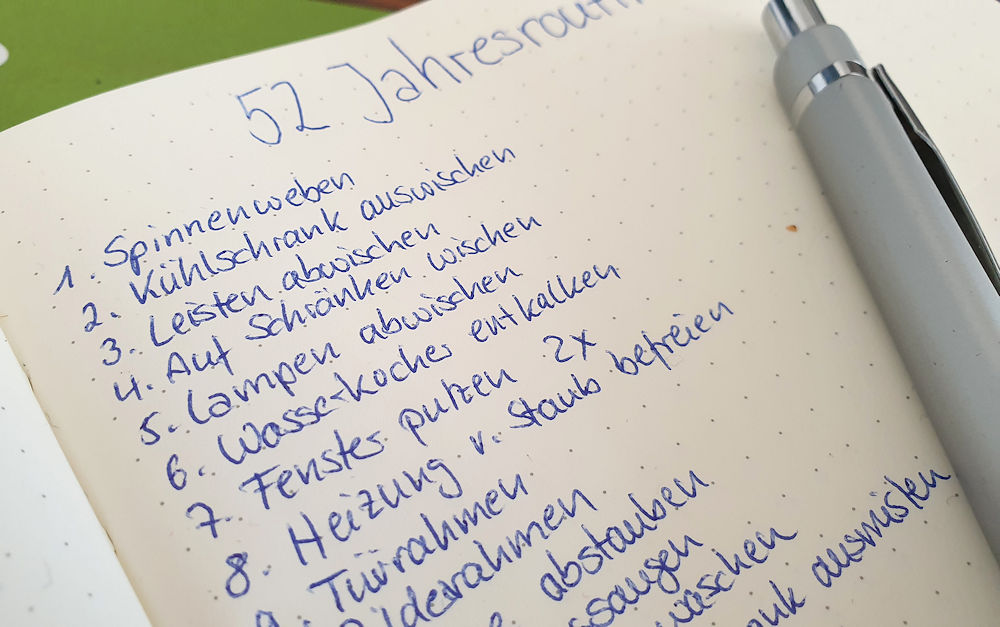 52 Jahresrouti
1. Spinnenweben
2. Kühlschrank auswischen
3. Leisten abwischen
4. Auf Schränken wischen
5. Lampen abwischen
6. Wasserkocher entkalken
7. Fenster putzen 2x
8. Heizung v. Staub befreien
9. Türrahmen
ilderrahmen
abstauben
saugen
waschen
ausmisten